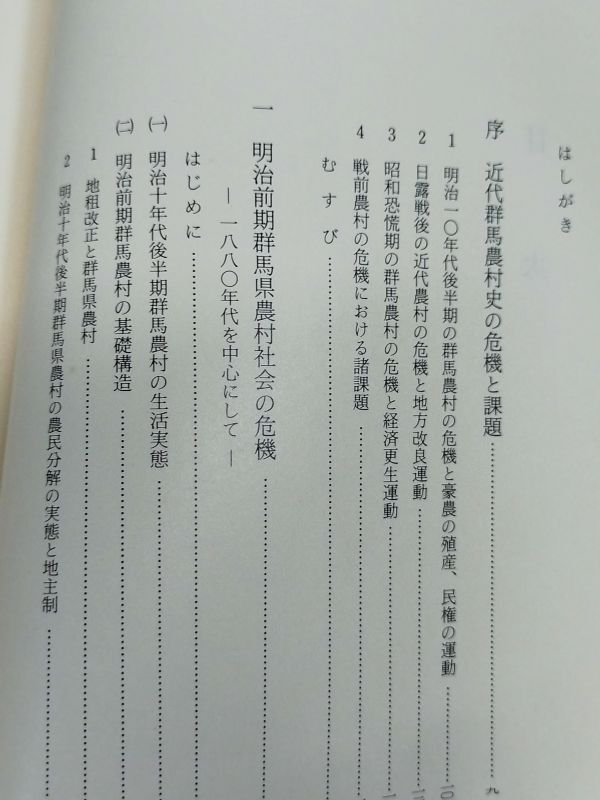 はしがき
序 近代群馬農村史の危機と課題……九
1 明治一〇年代後半期の群馬農村の危機と豪農の殖産、民権の運動……一〇
2 日露戦後の近代農村の危機と地方改良運動……
3 昭和恐慌期の群馬農村の危機と経済更生運動……
4 戦前農村の危機における諸課題……
むすび……
一 明治前期群馬県農村社会の危機……
― 一八八〇年代を中心にして ―
はじめに……
㈠ 明治十年代後半期群馬農村の生活実態……
㈡ 明治前期群馬農村の基礎構造……
1 地租改正と群馬県農村……
2 明治十年代後半期群馬県農村の農民分解の実態と地主制……